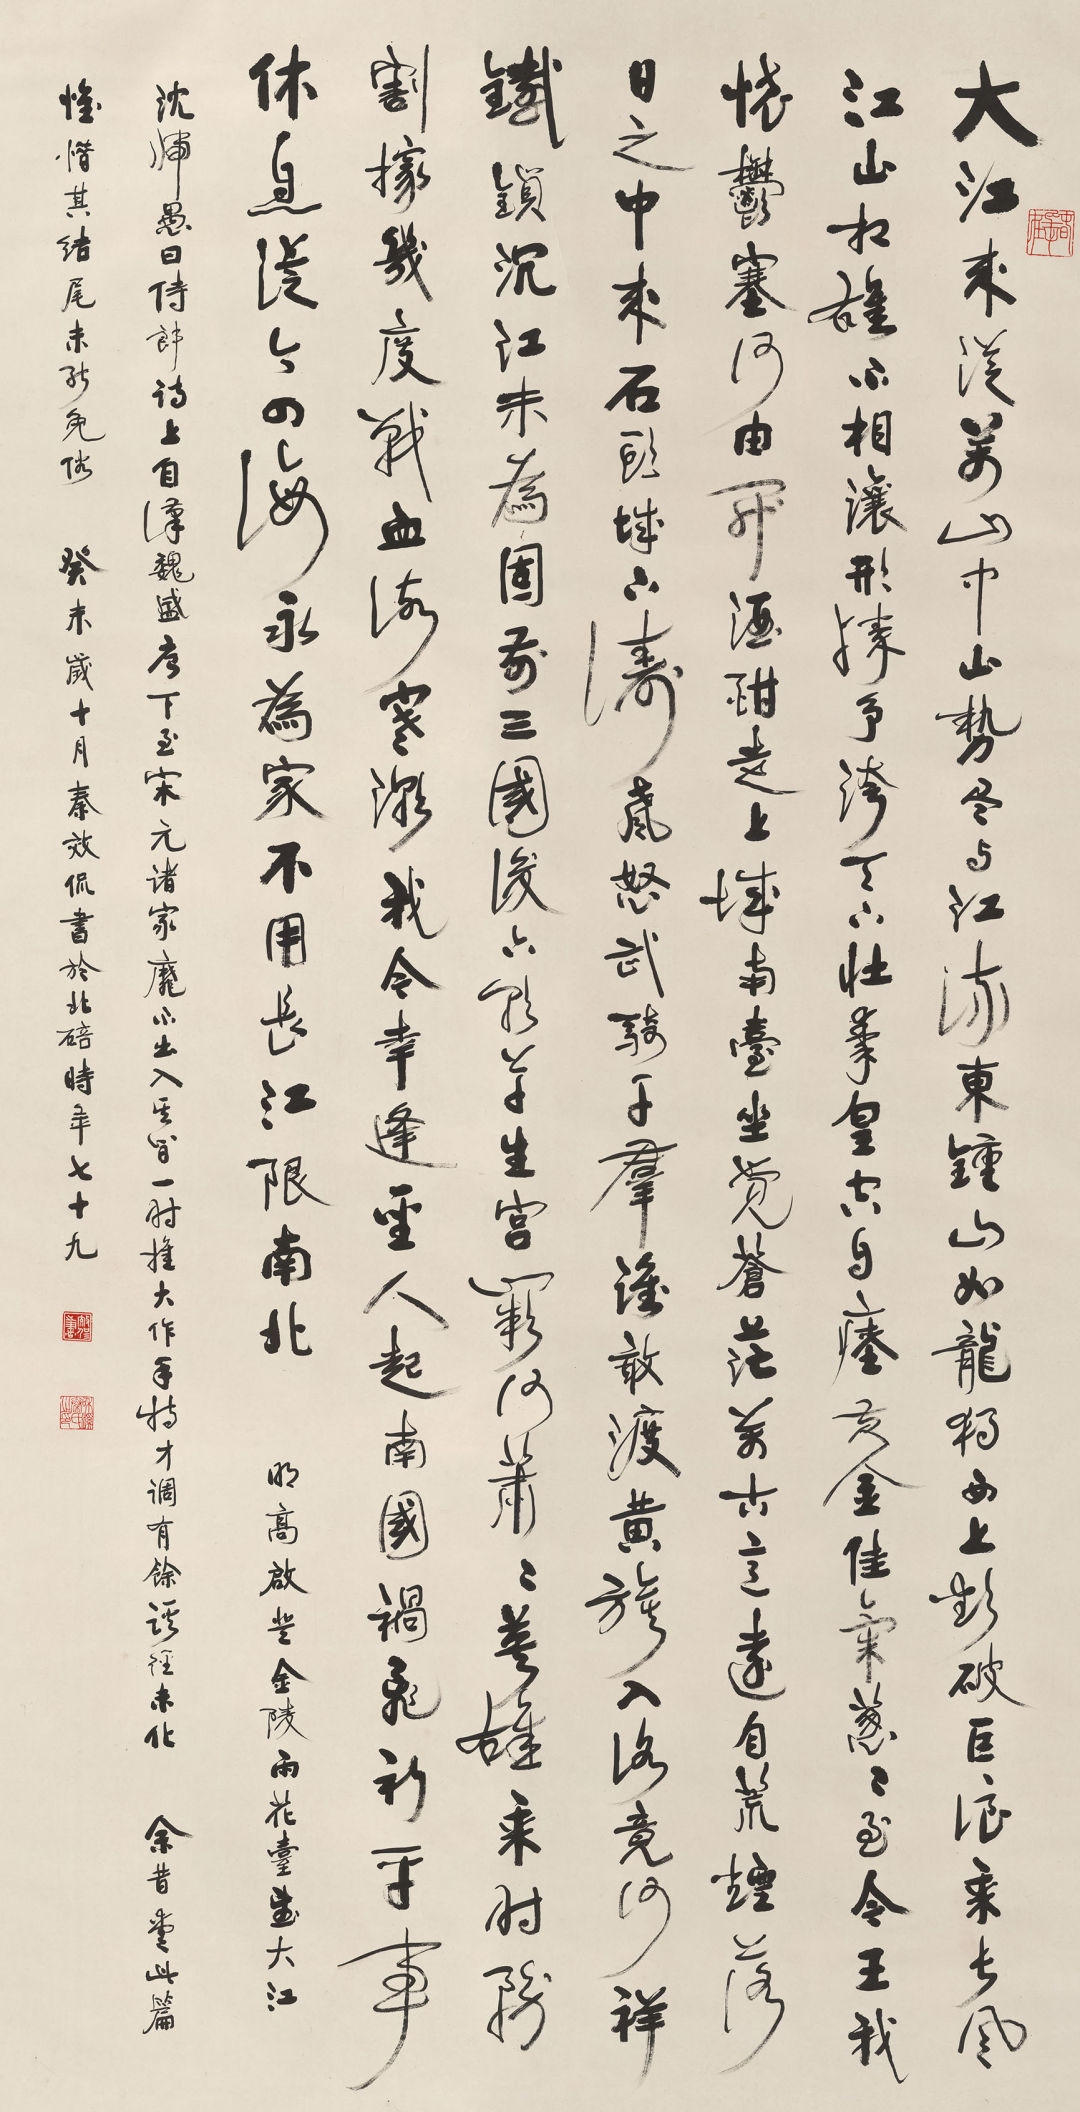 大江来從萬山中山勢尽与江流東鍾山如龍獨西上欲破巨浪乘长风
江山相雄不相讓形勝争誇天下壯秦皇空自瘞黄金佳氣葱〻至今王我
懷鬱塞何由開酒酣走上城南臺坐覺蒼茫萬古意遠自荒煙落
日之中来石頭城下濤聲怒武騎千羣誰敢渡黄旗入洛竟何祥
鐵鎖沉江未為固前三國後六朝草生宫闕何蕭〻英雄乘时務
割據幾度戰血流寒潮我今幸逢聖人起南國禍亂初平事
休息從今四海永為家不用長江限南北 明高啟登金陵雨花臺望大江
沈歸愚曰侍郎诗上自漢魏盛唐下至宋元诸家靡不出入其间一时推大作手特才调有餘蹊徑未化 余昔爱此篇
惟惜其绪尾未能免俗 癸未歲十月秦效侃書於北碚時年七十九